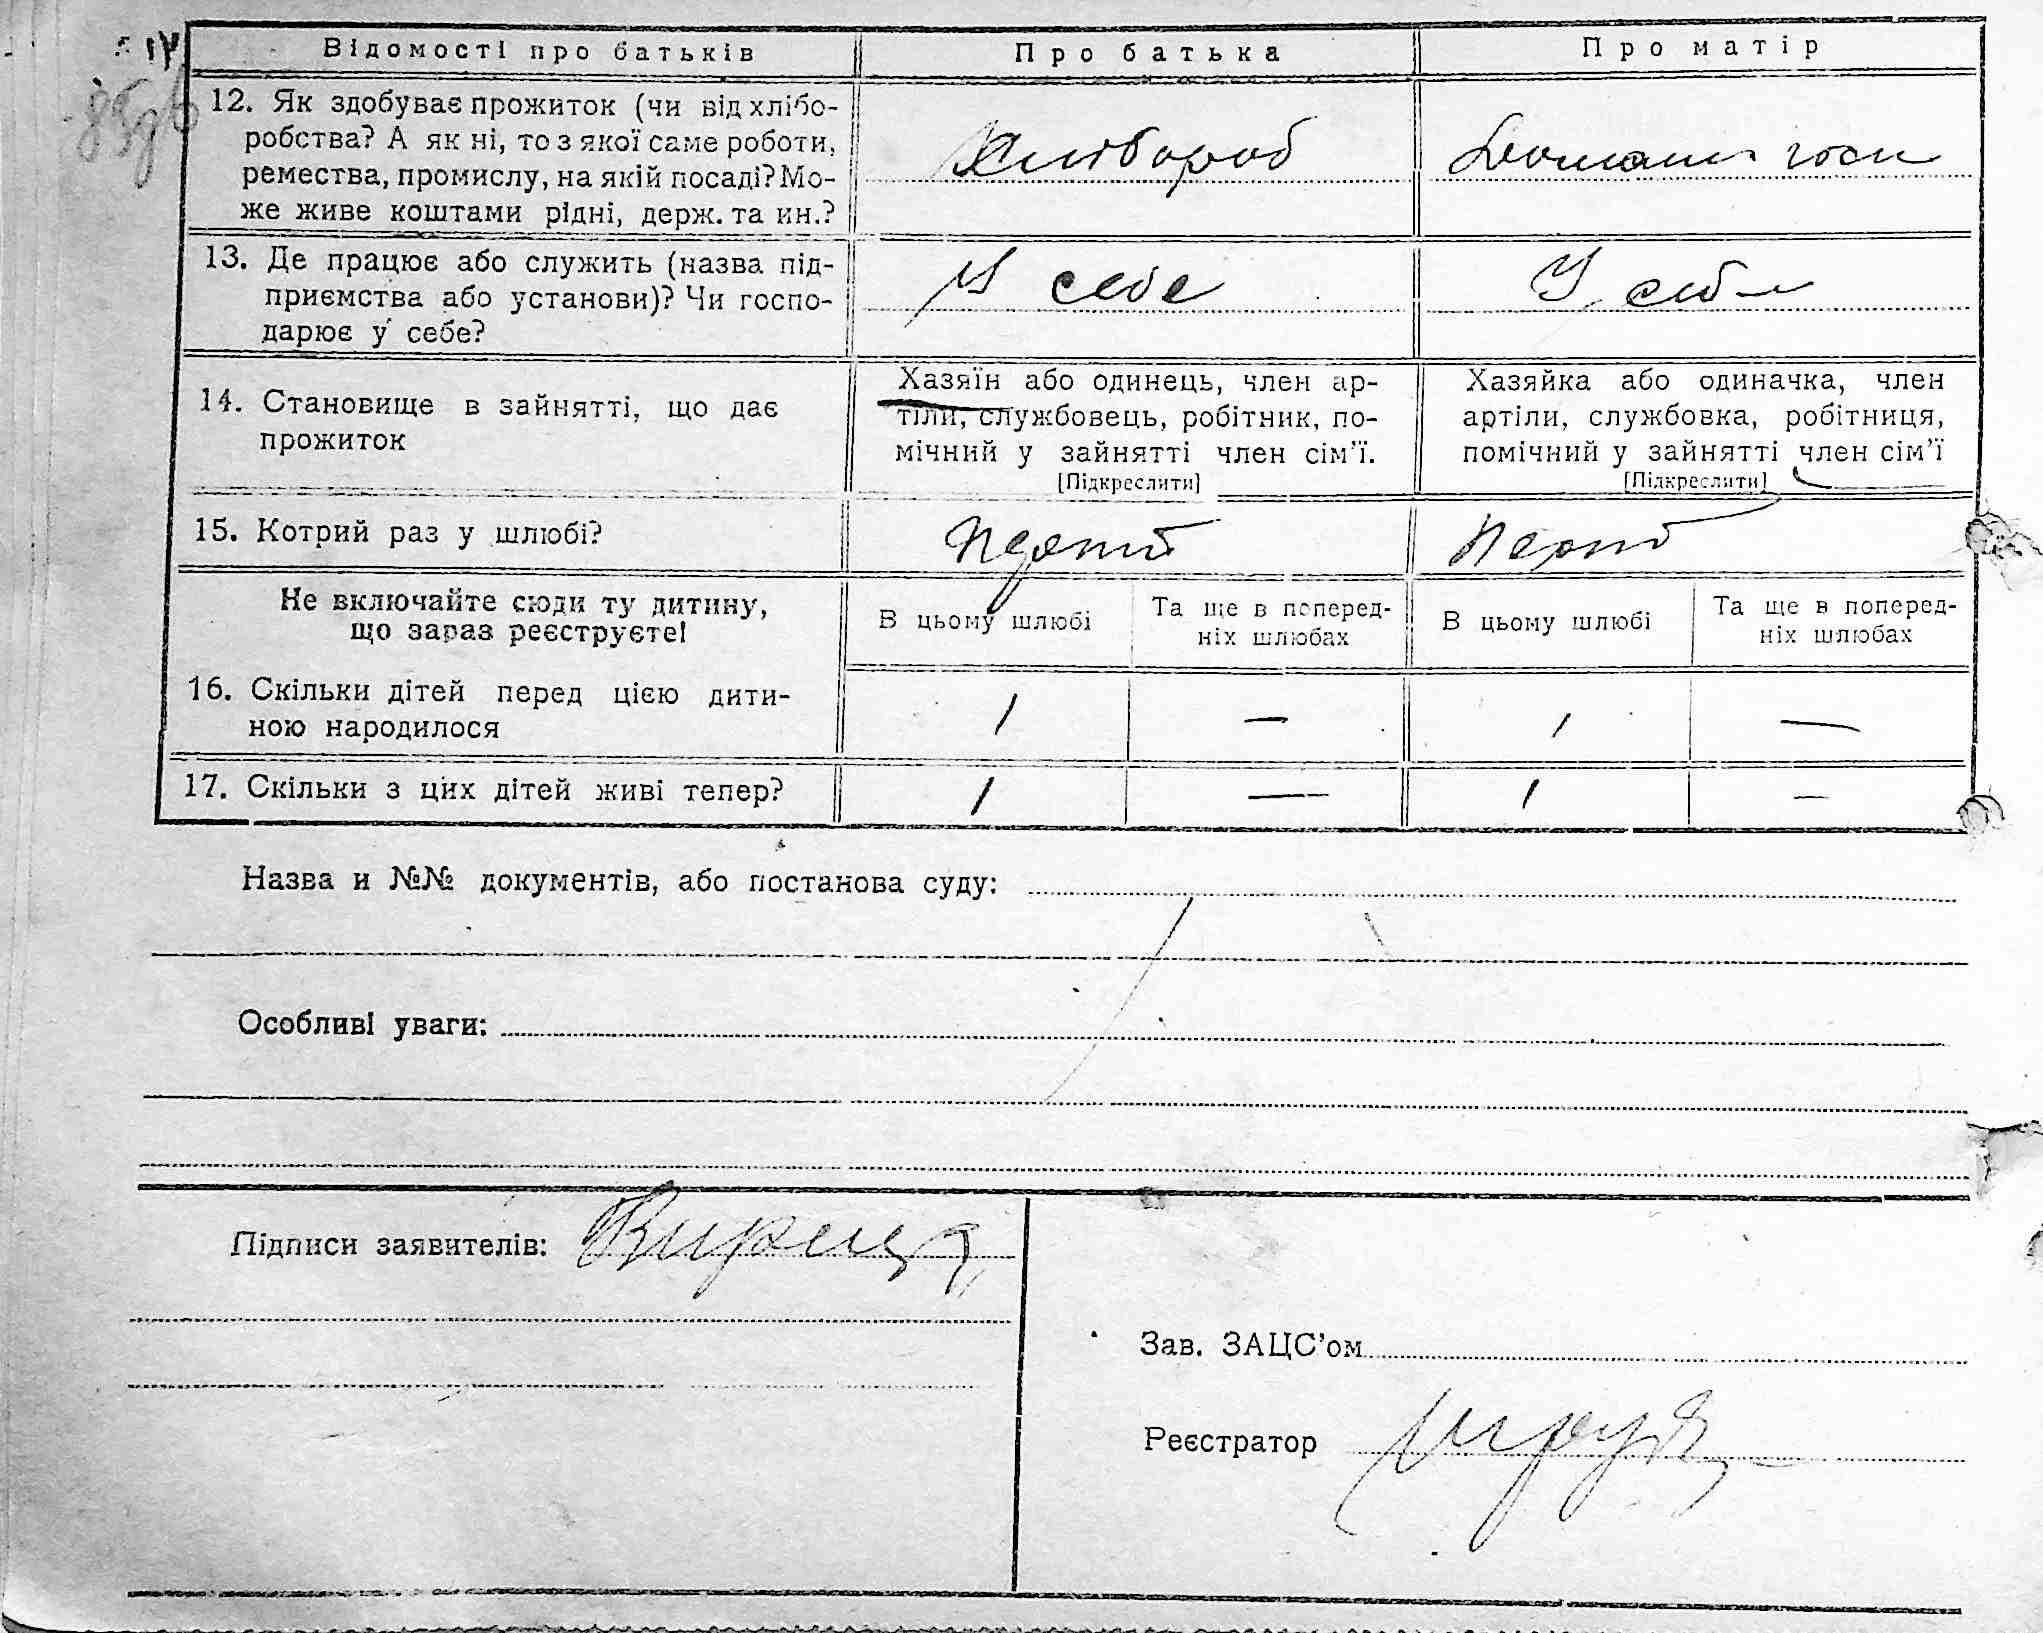 Відомості про батьків
Про батька
Про матір
12. Як здобуває прожиток (чи від хлібо-
робства? А як ні, то з якої саме роботи,
ремества, промислу, на якій посаді? Мо-
же живе коштами рідні, держ. та ин.?
Хлібороб
Домашн. госп
13. Де працює або служить (назва під-
приємства або установи)? Чи госпо-
дарює у себе?
У себе
У себе
14. Становище в зайнятті, що дає
прожиток
Хазяїн або одинець, член ар-
тіли, службовець, робітник, по-
мічний у зайнятті член сім'ї.
[Підкреслити]
Хазяйка або одиначка, член
артіли, службовка, робітниця,
помічний у зайнятті член сім'ї
[Підкреслити]
15. Котрий раз у шлюбі?
Перший
Не включайте сюди ту дитину,
що зараз реєструєте!
В цьому шлюбі
Та ще в поперед-
ніх шлюбах
В цьому шлюбі
Та ще в поперед-
ніх шлюбах
16. Скільки дітей перед цією дити-
ною народилося
1 — 1 —
17. Скільки з цих дітей живі тепер?
1 — 1 —
Назва и №№ документів, або постанова суду:
Особливі уваги:
Підписи заявителів:
Зав. ЗАЦС'ом
Реєстратор